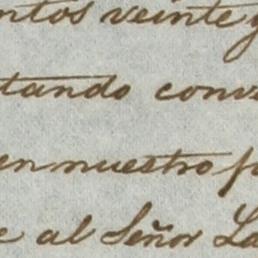 ntos veinte y
tando conv
en nuestro f
e al Señor La